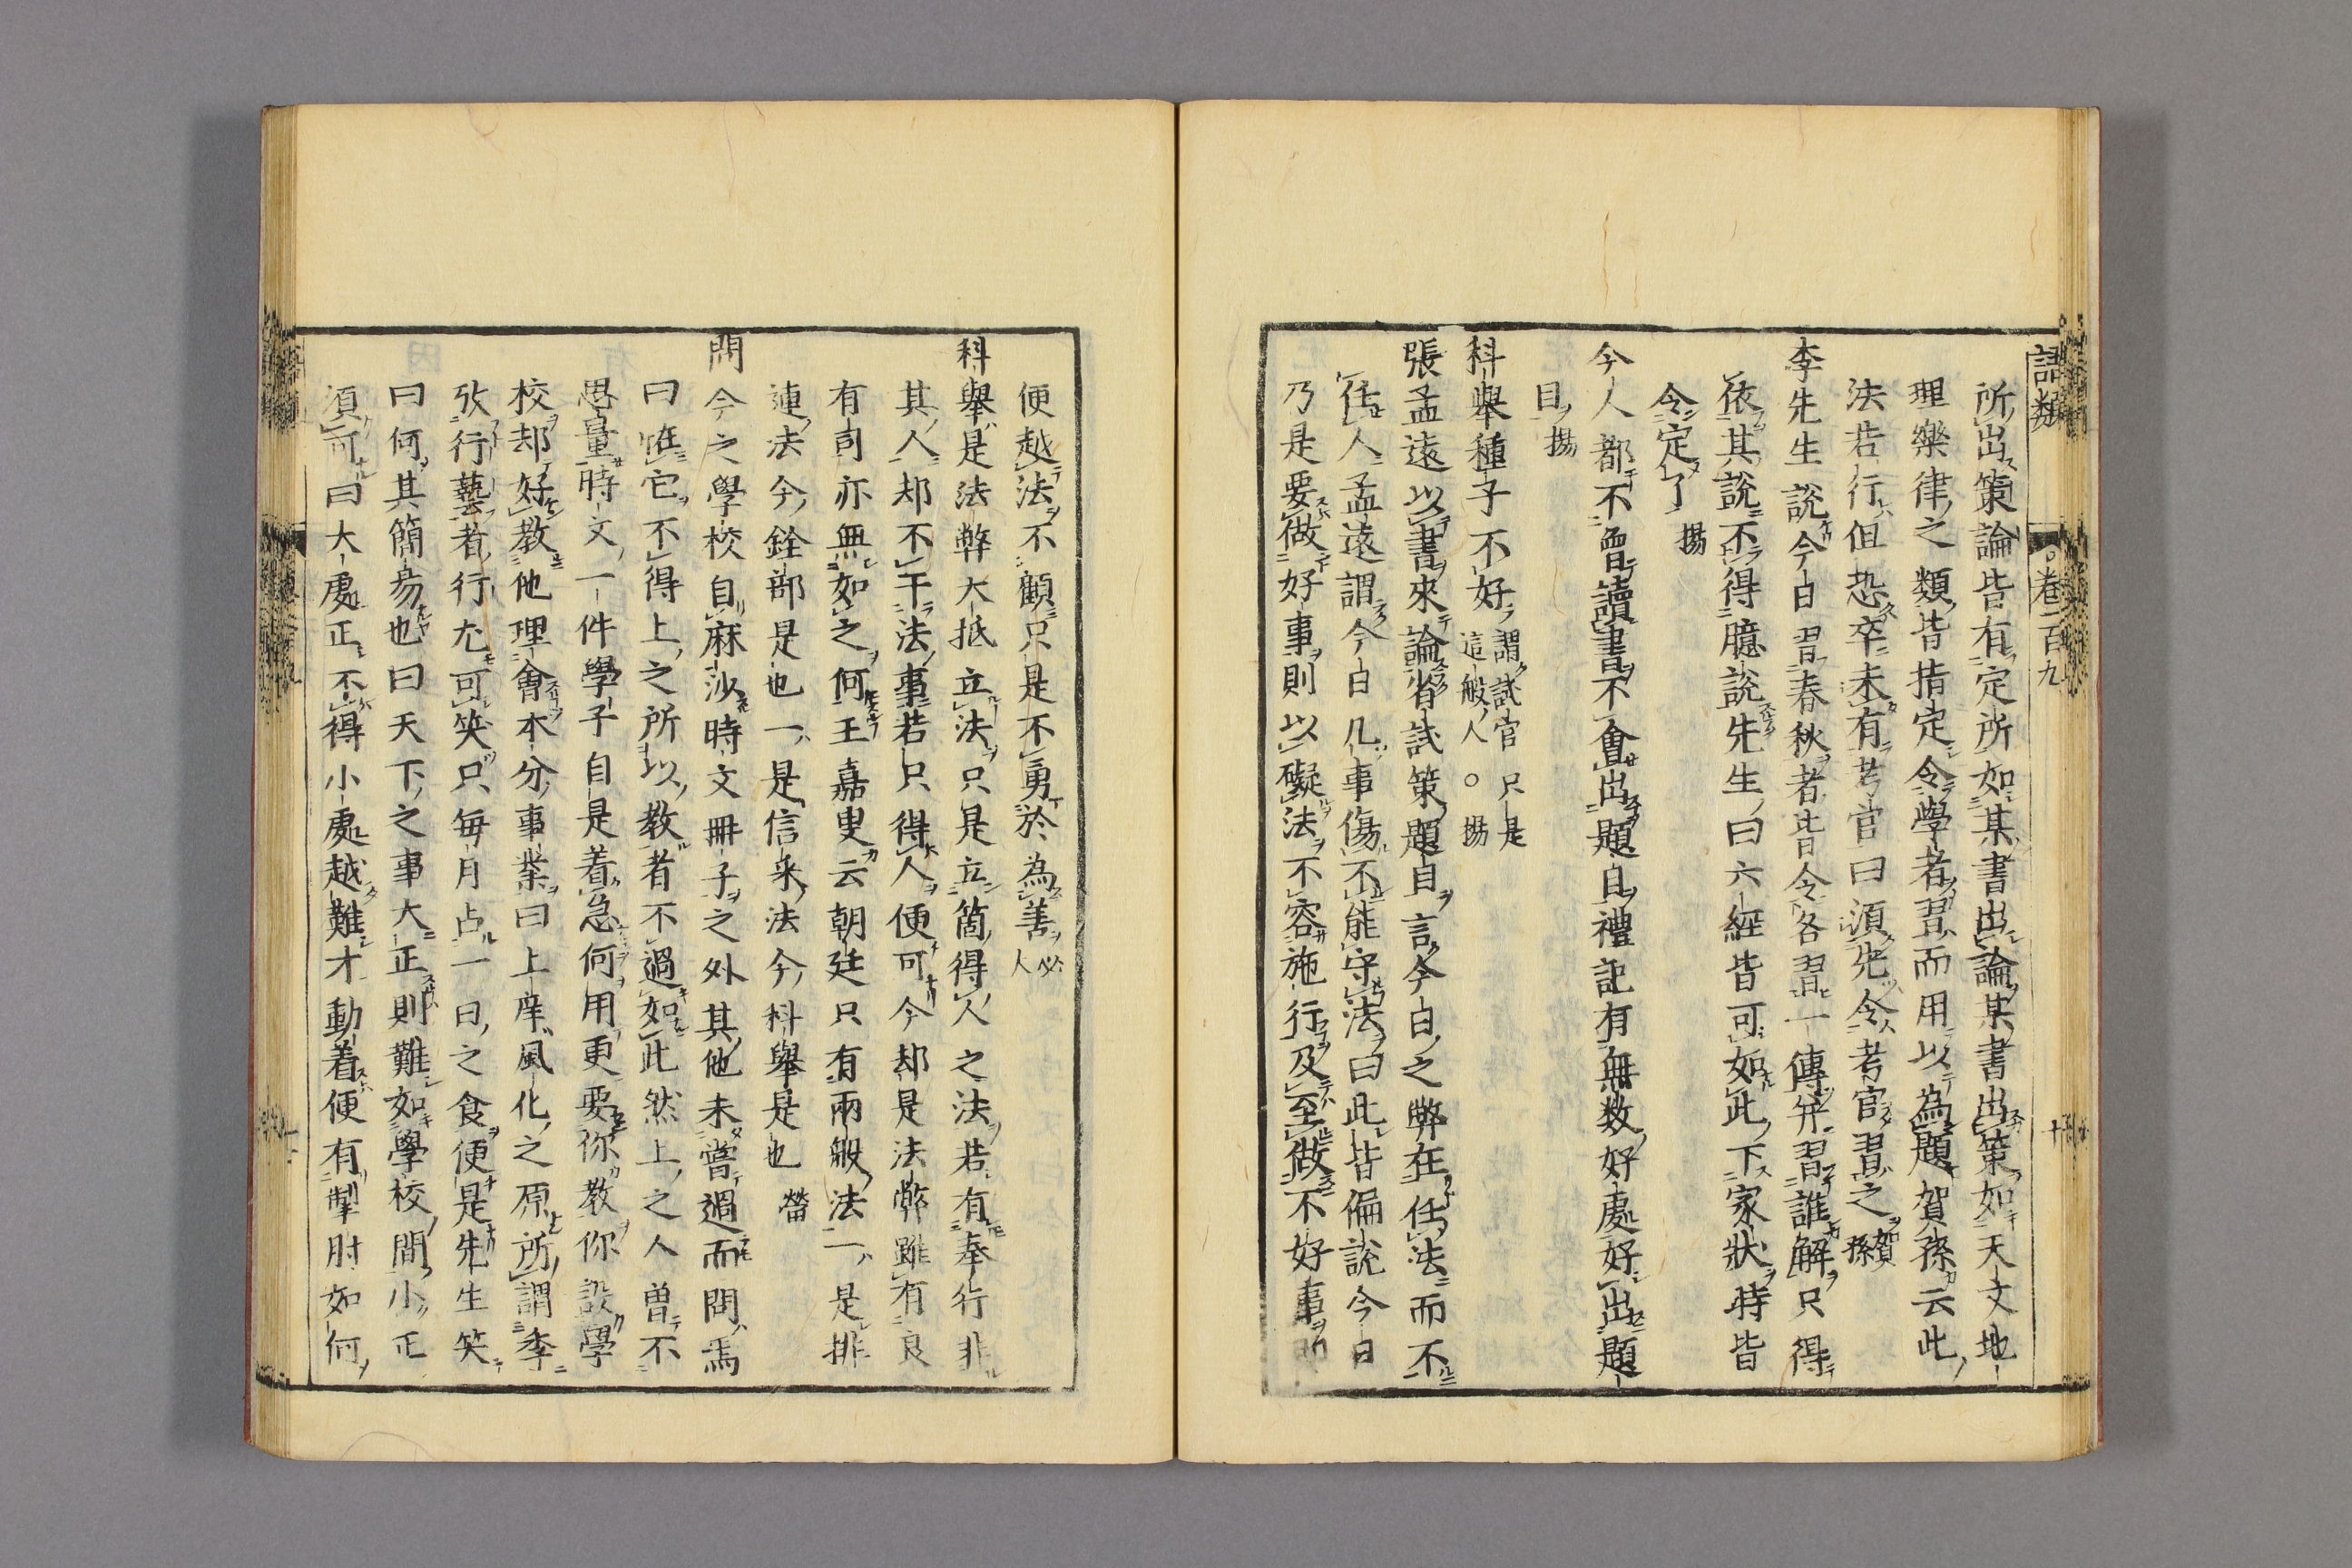 語類 卷一百九 十
所出策論皆有定所如某書出論某書出策如天文地
理樂律之類皆指定令學者習而用以為題賀孫云此
法若行但恐卒未有考官曰須先令考官習之賀孫
李先生說今日習春秋者皆令各習一傳并習誰解只得
依其說不得臆說先生曰六經皆可如此下家狀時皆
令定了揚
今人都不曾讀書不會出題目禮記有無數好處好出題
目揚
科舉種子不好謂試官只是
這般人○揚
張孟遠以書來論省試策題目言今日之弊在任法而不
任人孟遠謂今日凡事傷不能守法曰此皆偏說今日
乃是要做好事則以礙法不容施行及至做不好事
便越法不顧只是不勇於為善必人
科舉是法弊大抵立法只是立箇得人之法若有奉行非
其人却不干法事若只得人便可今却是法弊雖有良
有司亦無如之何王嘉叟云朝廷只有兩般法一是排
連法今銓部是也一是信采法今科舉是也𤇾
問今之學校自麻沙時文冊子之外其他未嘗過而問焉
曰怪它不得上之所以教者不過如此然上之人曾不
思量時文一件學子自是着急何用更要你教你設學
校却好教他理會本分事業曰上庠風化之原所謂季
攷行藝者行尤可笑只每月占一日之食便是先生笑
曰何其簡易也曰天下之事大正則難如學校間小正
須可曰大處正不得小處越難才動着便有掣肘如何